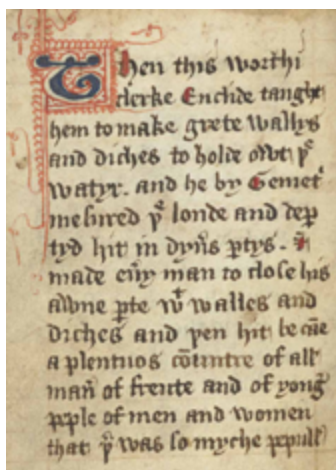 Then this worthi
clerke Euclide taught
hem to make grete wallys
and diches to holde owt þe
watyr. and he by Gemetͬ
mesured þe londe and dep̱
tyd hit in dyūs ꝑtys. &
made eūy man to close his
awne ꝑte wt walles and
diches and þen hit be cāe
a plentuos cōuntre of all
mañ of freute and of yong
pꝑle of men and women
that þr was so myche pepull